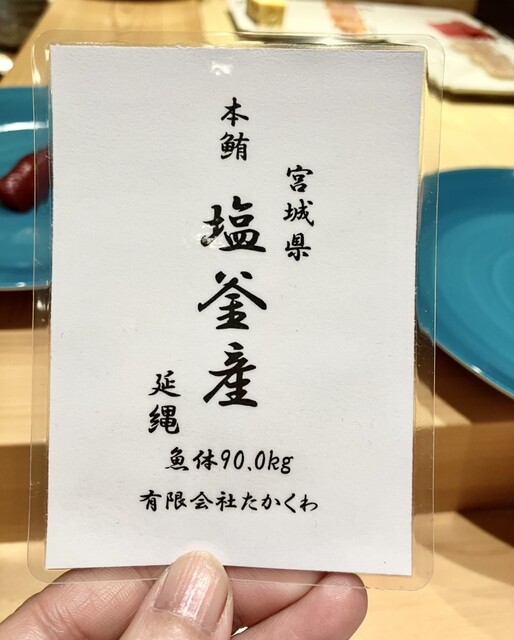 本鮪
宮城県
塩釜産
延縄
魚体90.0kg
有限会社たかくわ